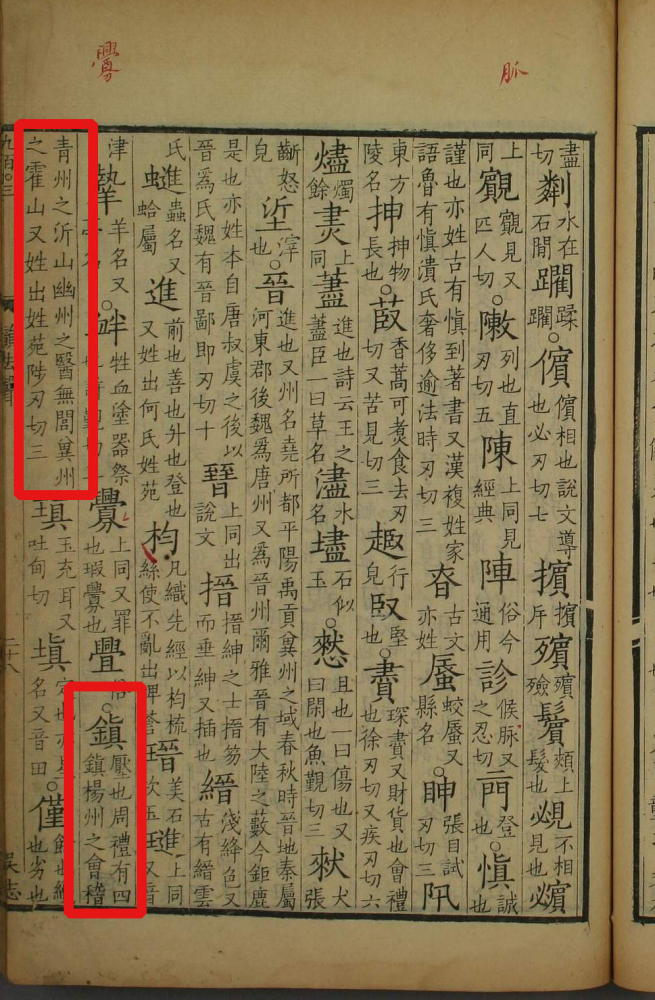 覺
脈
盡
切㔂水在石閒躙蹂躙儐儐相也說文導也必刃切七擯擯斥殯殯殮鬢頰上髮也覕不相見也㵣
上同覼覼見又匹人切敶列也直刃切五陳上同見經典陣俗今通用診候脉又之忍切登也愼誠也
謹也亦姓古有愼到著書又漢複姓家語魯有愼潰氏奢侈逾法時刃切三昚古文亦姓蜃蛟蜃又縣名眒張目試刃切三阠
東方陵名抻抻物長也菣香蒿可煑食去刃切又苦見切三趣行皃臤堅也賮琛賮又財貨也會禮也徐刃切又疾刃切六
燼燭餘㶳上同藎進也詩云王之藎臣一曰草名濜水名璶石似玉憖且也一曰傷也又曰閑也魚覲切三猌犬張
齗怒皃垽滓也晉進也又州名堯所都平陽禹貢兾州之域春秋時晉地秦屬河東郡後魏爲唐州又爲晉州爾雅晉有大陸之藪今鉅鹿
是也亦姓本自唐叔虞之後以晉爲氏魏有晉鄙即刃切十㬜上同出說文搢搢紳之士搢笏而垂紳又插也縉淺絳色又古有縉雲
氏蟲名又蛤屬進前也善也升也登也又姓出何氏姓苑枃凡織先經以枃梳絲使不亂出埤蒼瑨美石次玉璡上同又音
津羊名又牲血塗器祭也上同又罪也瑕釁也亹俗鎭壓也周禮有四鎭楊州之會稽
青州之沂山幽州之醫無閭兾州之霍山又姓出姓苑陟刃切三瑱玉充耳又吐甸切塡名又音田僅餘也劣也
九百〇三
二十八
吴志